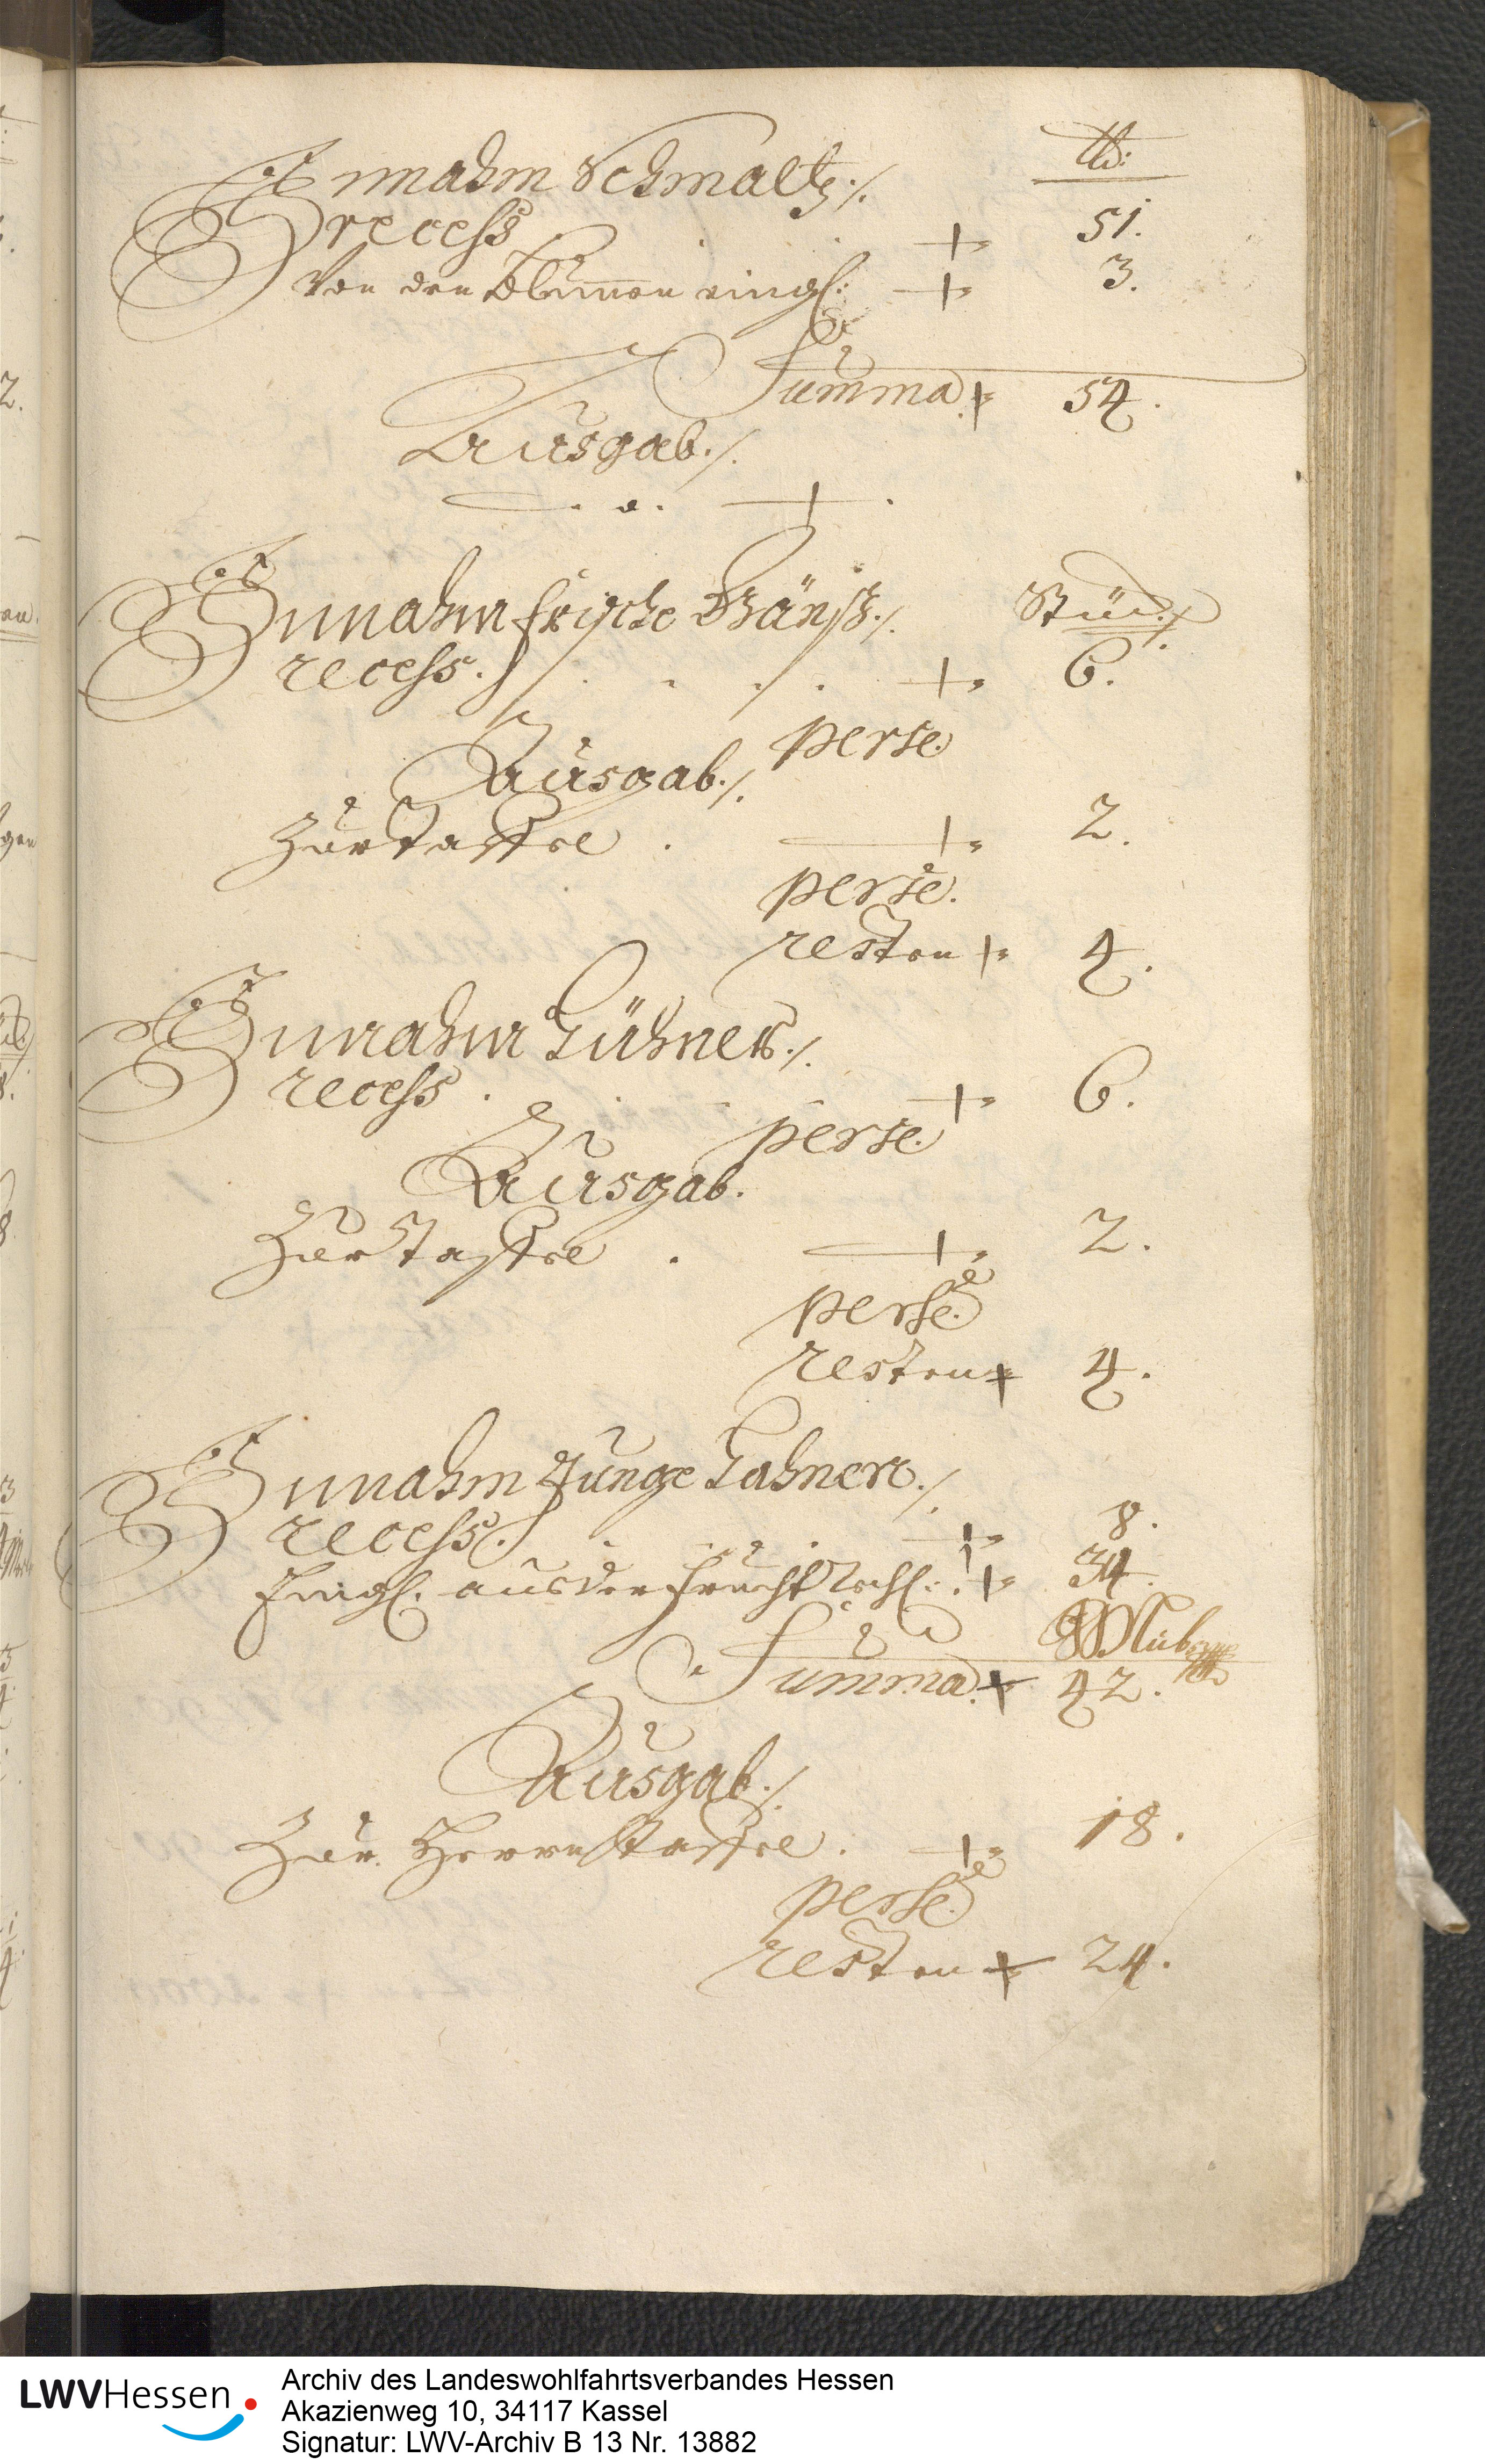 Einnahm Schmaltz ./. lb:
recess 51.
Von den Blumen eingl: 3.
Summa 54.
Ausgab ./.
Einnahm frische Gänß ./. Stück
recess. 6.
perse
Ausgab ./.
Zur taffel 2.
perse.
resten 4.
Einnahm Hühner ./.
recess 6.
perse.
Ausgab.
Zur Taffel 2.
perse.
resten 4.
Einnahm Junge Hahnen ./.
recess. 8.
Eingl. aus der frucht 34.
Summa. 42.
Ausgab ./.
Zur Herrn taffel. 18.
perse.
resten 24.
LWVHessen
Archiv des Landeswohlfahrtsverbandes Hessen
Akazienweg 10, 34117 Kassel
Signatur: LWV-Archiv B 13 Nr. 13882